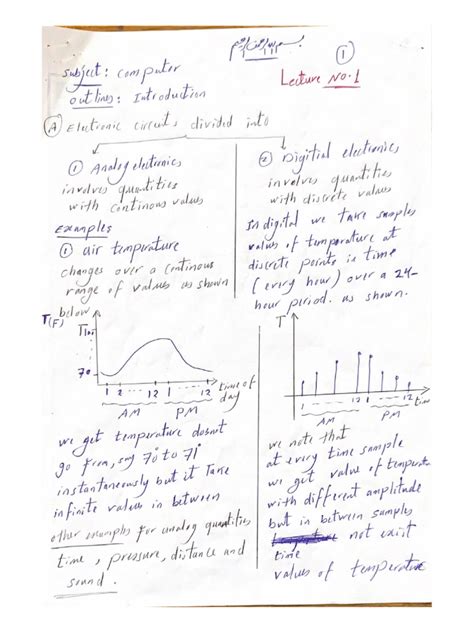 بسم الله الرحمن الرحيم
1
Subject: Computer
Lecture No.1
outlines: Introduction
A Electronic circuits divided into
① Analog electronics
involves quantities
with continous values
Examples
① air temperature
changes over a continous
range of values as shown
below
T(F)
70
1 2 -- 12 1 12
time of
day
AM PM
we get temperature doesnot
go from, say 70° to 71°
instantaneously but it Take
infinite values in between
other examples for analog quantities
time, pressure, distance and
sound.
② Digitial electronics
involves quantities
with discrete values
In digital we take samples
values of temperature at
discrete points in time
(every hour) over a 24-
hour period. as shown.
T
1 2 12 1 12 time
AM PM
we note that
at every time sample
we get value of temperature
with different amplitude
but in between samples
not exist
time
values of temperature